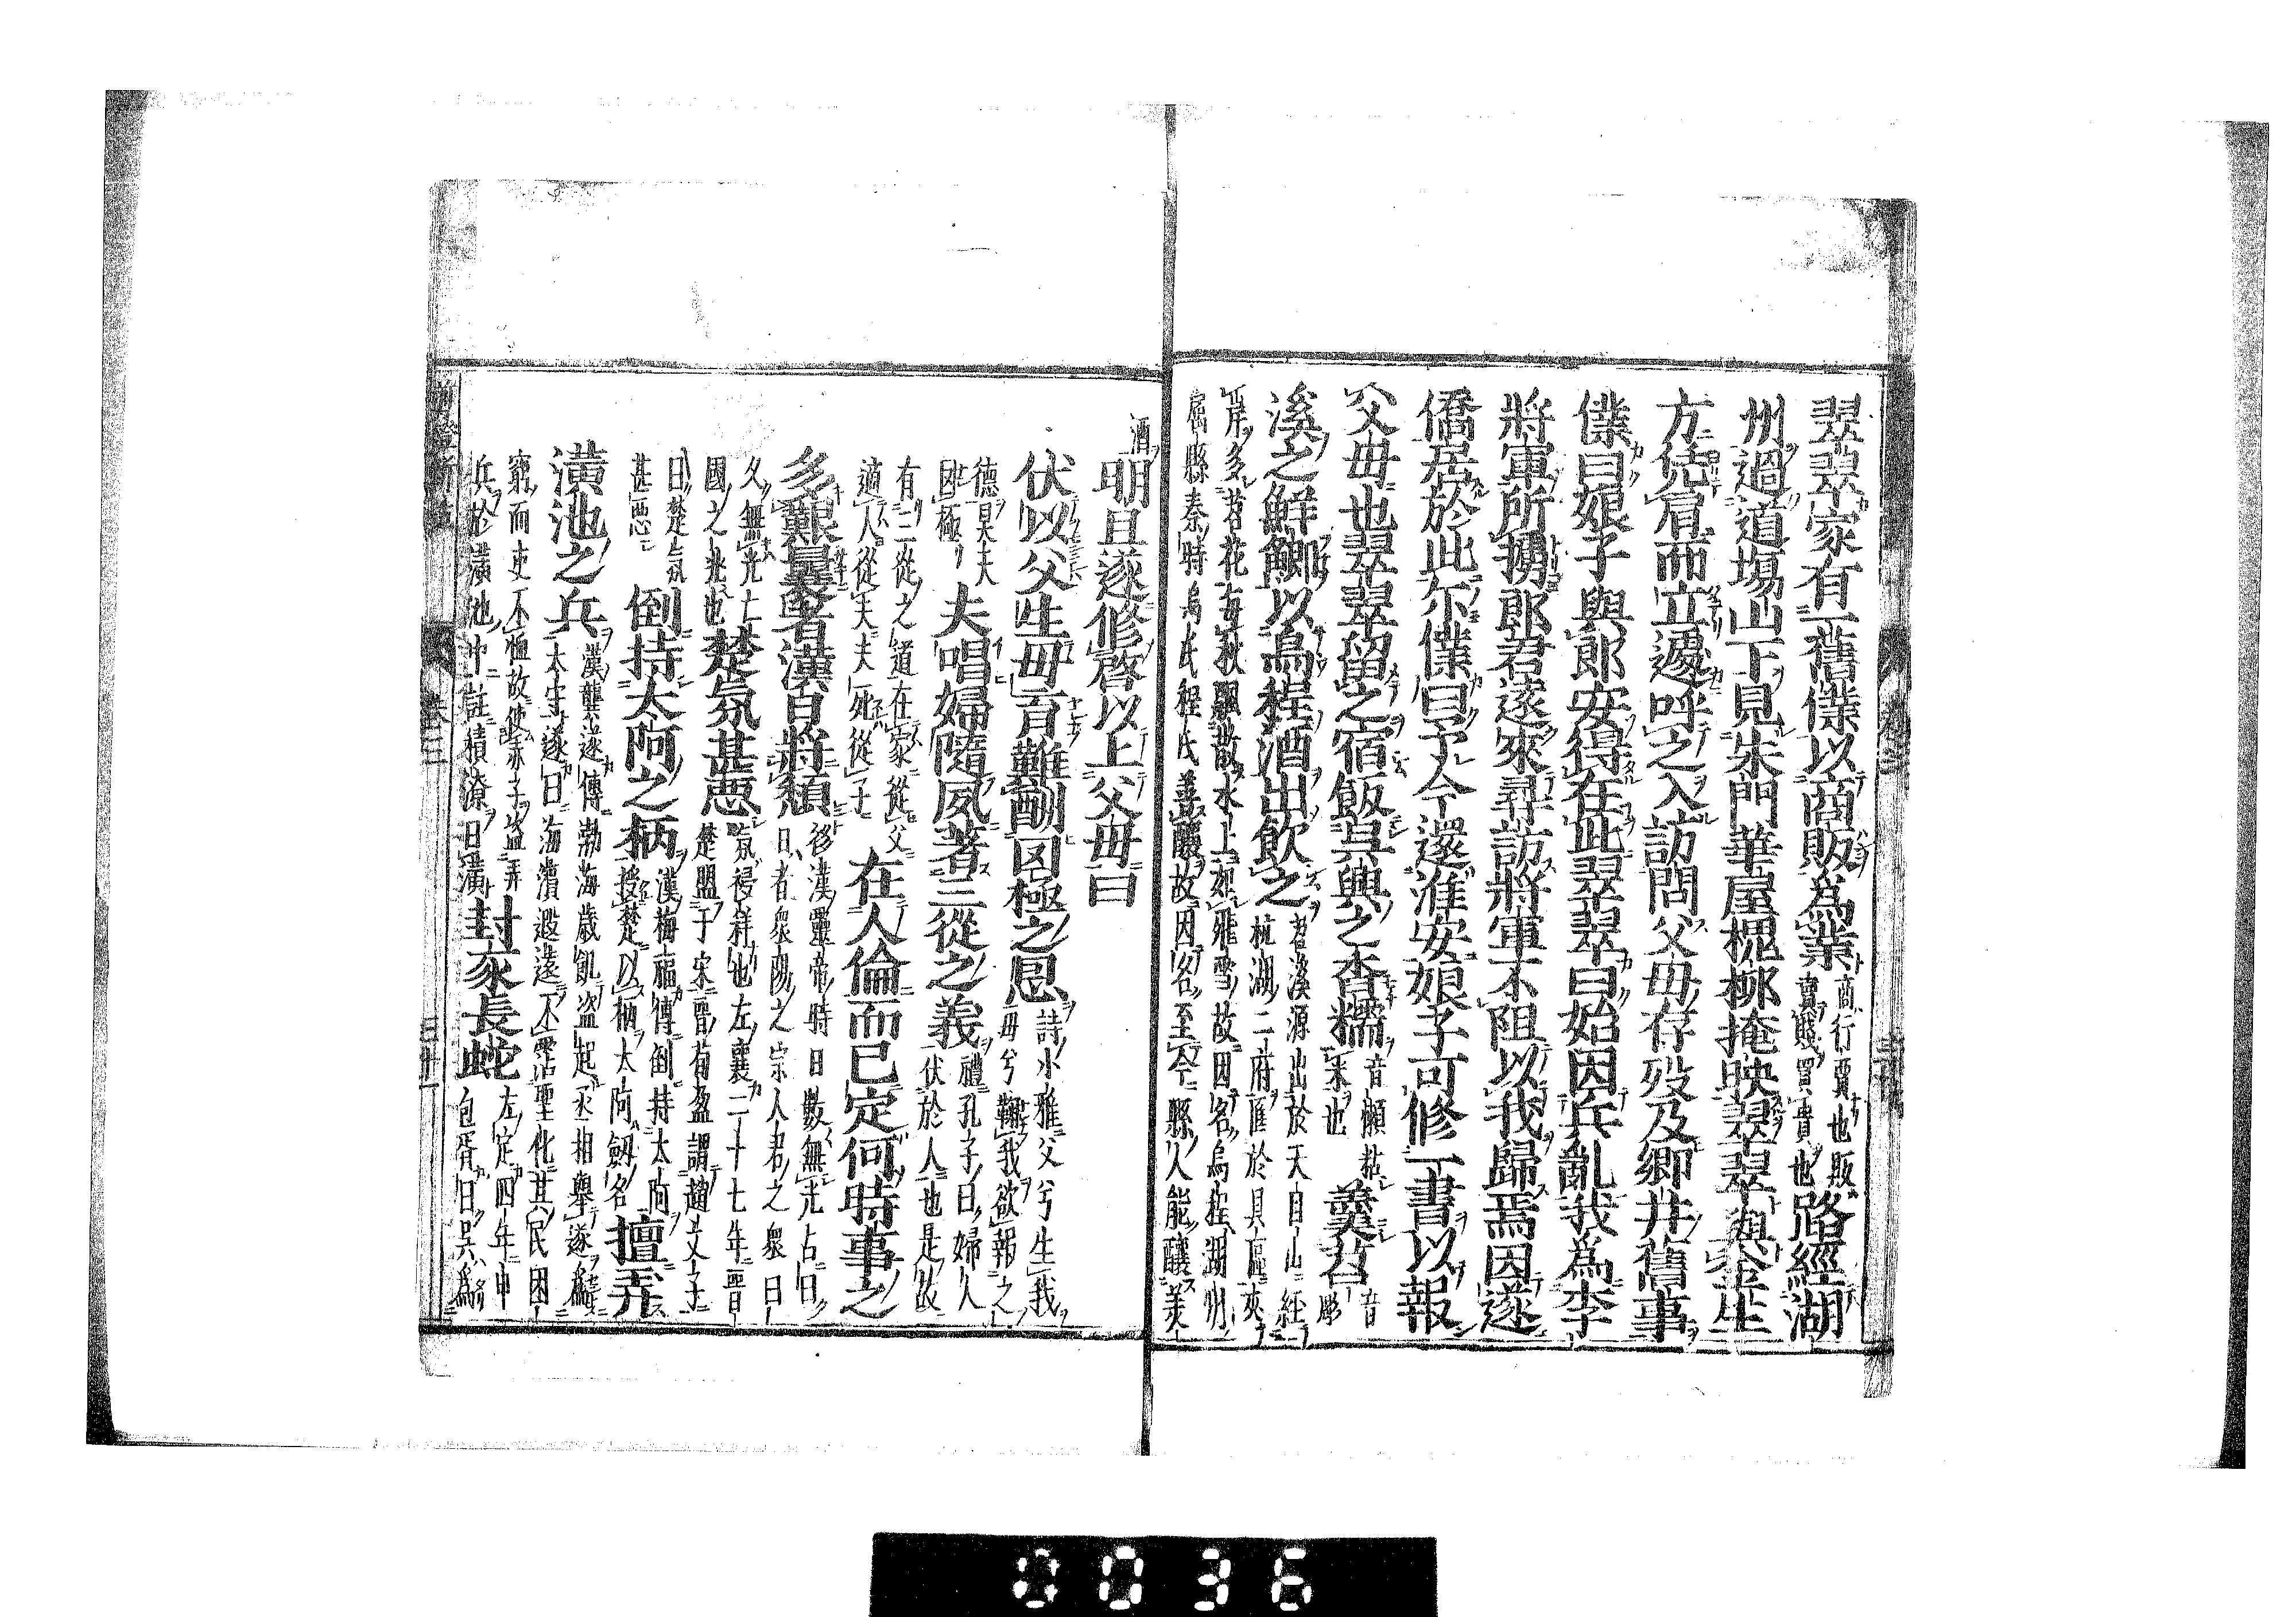 翠翠家有一舊僕以商販爲業商行賈也販賣賤買貴也路經湖
州過道場山下見朱門華屋槐柳掩映翠翠與金生
方凭肩而立遽呼之入訪問父母存歿及鄉井舊事
僕曰娘子與郎安得在此翠翠曰始因兵亂我爲李
將軍所擄郎君遠來尋訪將軍不阻以我歸焉因遂
僑居於此尓僕曰予今還淮安娘子可修一書以報
父母也翠翠留之宿飯吳興之香糯音懶粘米也羹苕音彫
溪之鮮鯽以烏程酒出飲之苕溪源出於天目山經杭湖二府匯於具區夾
岸多苕花每秋飄散水上如飛雪故因名烏程湖州
屬縣秦時烏氏程氏善釀故因名至今縣人能釀美
酒明旦遂修啓以上父母曰
伏以父生母育難酬罔極之恩詩小雅父兮生我母兮鞠我欲報之
德昊天罔極夫唱婦隨夙著三從之義禮孔子曰婦人伏於人也是故
有三從之道在家從父適人從夫夫死從子在人倫而已定何時事之
多艱曩者漢日將頹後漢靈帝時日數無光占曰日者衆陽之宗人君之衆日
久無光亡國之兆也楚氛甚惡氛祲祥也左襄二十七年晋楚盟于宋晋荀盈謂趙文子
曰楚氛甚惡倒持太阿之柄漢梅福傳倒持太阿授楚以柄太阿劔名擅弄
潢池之兵漢龔遂傳渤海歲飢盗起丞相舉遂爲太守遂曰海瀕遐遠不霑聖化其民困
窮而吏不恤故使赤子盗弄兵於潢池中註積潦曰潢封豕長蛇左定四年申包胥曰吳爲
剪燈新話 卷三 三十一
0036